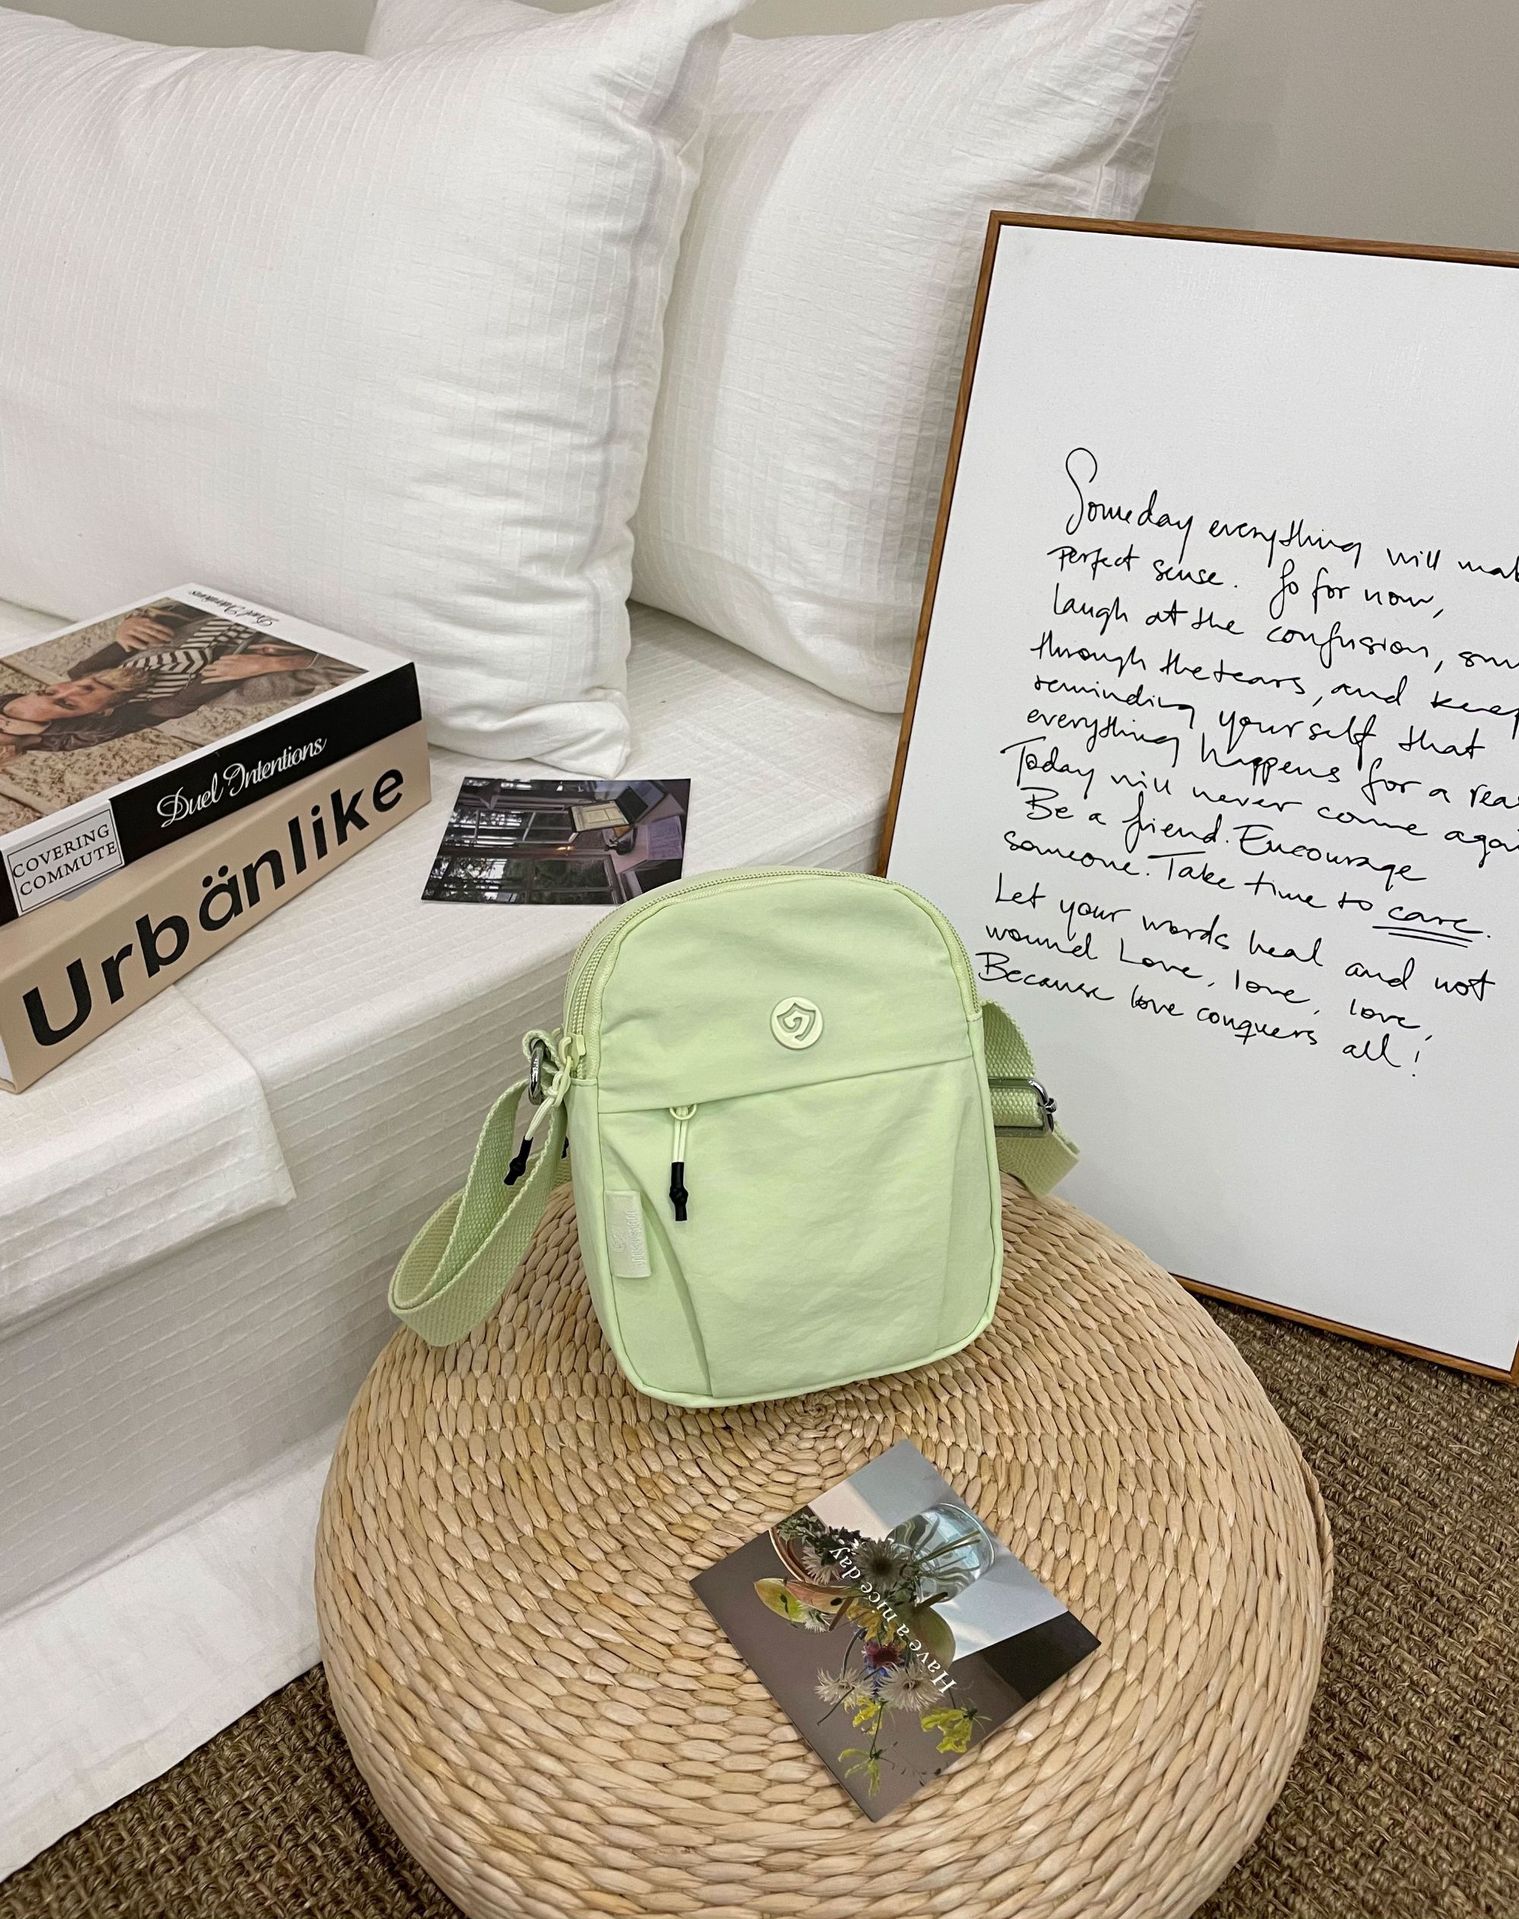 Duel Intentions
Duel Intentions
COVERING
COMMUTE
Urbänlike
Someday everything will mak
perfect sense. So for now,
laugh at the confusion, sm
through the tears, and keep
reminding yourself that
everything happens for a reas
Today will never come agai
Be a friend. Encourage
someone. Take time to care.
Let your words heal and not
wound Love, love, love,
Because love conquers all!
Have a nice day